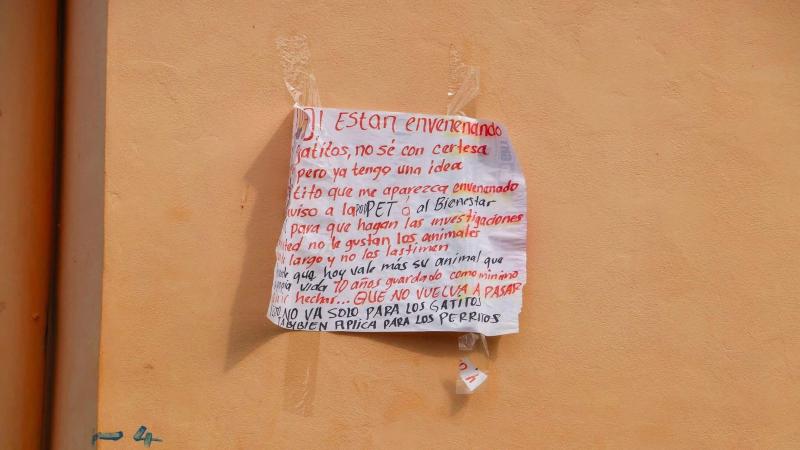 ! Estan envenenando
gatitos, no sé con certesa
pero ya tengo una idea
tito que me aparezca envenenado
aviso a la PET ó al Bienestar
para que hagan las investigaciones
usted no le gustan los animales
largo y no los lastimen
que hoy vale más su animal que
vida 70 años guardado como minimo
hechas... QUE NO VUELVA A PASAR
NO VA SOLO PARA LOS GATITOS
TAMBIEN APLICA PARA LOS PERRITOS